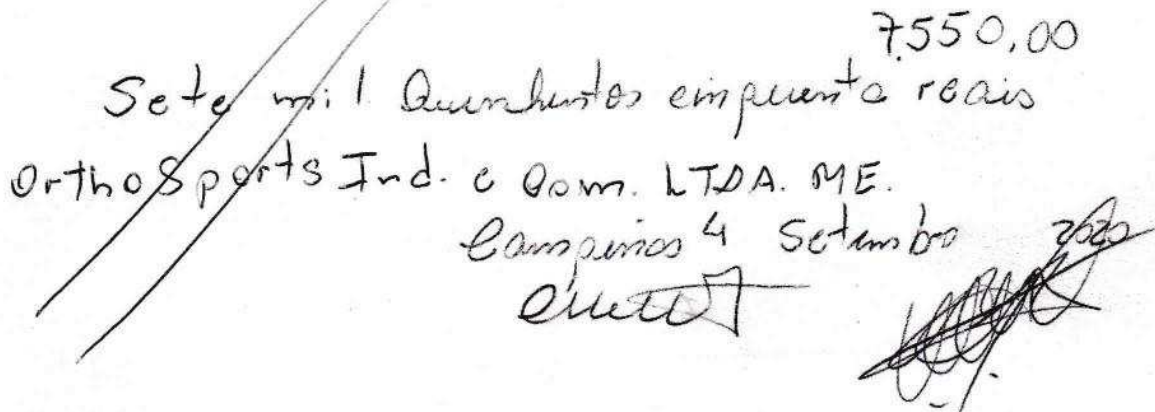 7.550,00
Sete mil Quinhentos cinquenta reais
OrthoSports Ind. e Com. LTDA. ME.
Campinas 4 Setembro 2020